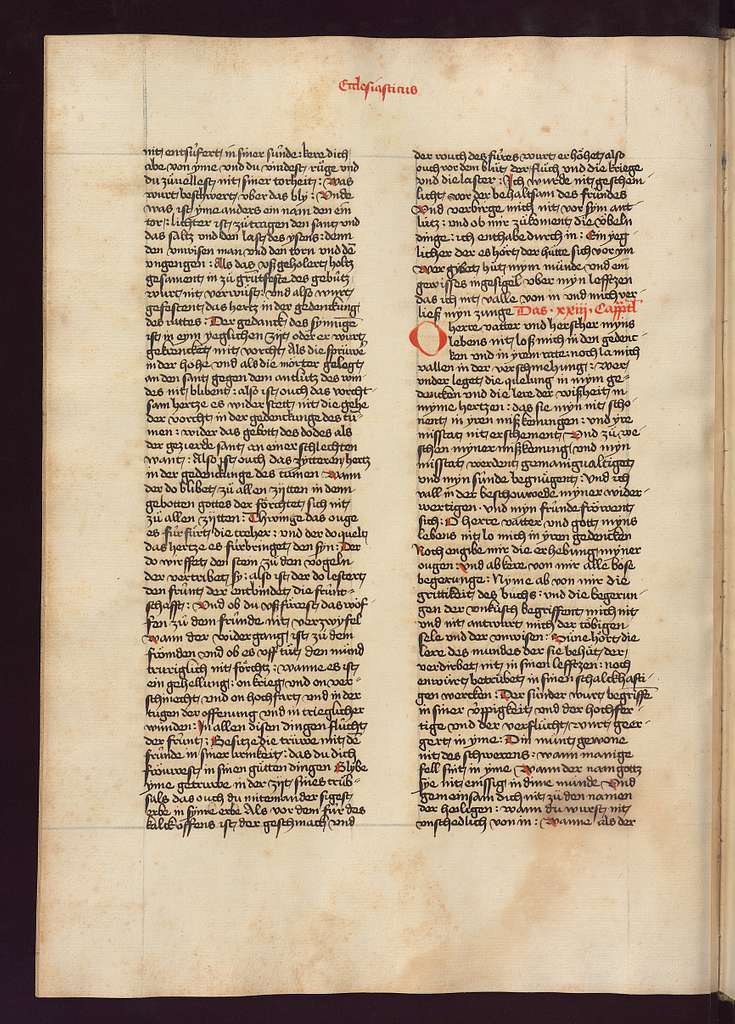 Ecclesiasticus
nit entsufert in siner sünde : kere dich
abe von yme und du vindest rüge und
du züvellest nit siner torheit : Was
wurt beschwert uber das bly : Unde
was ist yme anders ein nam den ein
tor : lichter ist zütragen den sant und
das saltz und den last des ysens : denn
den unwisen man und den torn und dē
ungengen : Als das usgeholert holtz
gesament in zü gruntfeste des gebütz
wurt nit verwust : und also wurt
gefestent das hertz in der gedenckung
des rattes : Der gedanck des synnige
ist in eym yeglichen zijt oder er wurt
gekrencket mit vorcht Als die spruwe
in der hohe und als die mörter gelegt
an den sant gegen dem antlütz des win
des nit blibent : also ist ouch das vorcht
sam hertze es widerstett nit die gehe
der vorcht in der gedenckunge des tü-
men : wider das gebott des dodes als
der gezierde sant an einer schlechten
want : Also ist ouch das zytteren hertz
in der gedenckunge des tümen Wann
der do blibet zü allen zijtten in denn
gebotten gottes der förchtet sich nit
zü allen zijtten : Thwinge das ouge
es fürfürt die treher : und der do quelt
das hertze es fürbringet den syn : Der
do wirffet den stein zü den vögeln
der vertribet sy : also ist der do lestert
den frünt der entbindet die frünt-
schafft : Und ob du usfürest das wof
fen zü dem fründe nit verzwyfel
Wann der widergang ist zü dem
frömden und ob es uff tüt den mund
truriglich nit förcht : wanne es ist
ein gehellung : on krieg und on ver-
schmecht und on hochfart und in der
tugen der offenung und in trieglicher
wunden : In allen disen dingen flücht
der frünt : Besitze die trüwe mit dē
fründe in siner armkeit : das du dich
fröuwest in sinen gütten dingen Blybe
yme getruwe in der zijt sines trüb-
sals das ouch du mitenander sigest
erbe in syme erbe Als vor dem für des
kalckoffens ist der geschmach und
der rouch des füres wurt erhöhet also
ouch vor dem blüt der flüch und die kriege
und die laster : Ich wurde nit geschem
licht vor der behaltsam des fründes
Und verbirge mich nit vor sym ant
lütz : und ob mir zükoment die ybeln
dinge : ich enthabe durch in : Ein yeg
licher der es hört der hütte sich vor ym
Wer gybet hüt mym munde und ein
gewisses ingesigel uber myn lefftzen
das ich nit valle von in und mich ver
ließ myn zunge Das · xxiii · Cappittel
O herre vatter und herscher myns
lebens nit loß mich in den gedenc
ken und in yrem ratte : noch la mich
vallen in der verschmehung : Wer
under leget die quelung in mym ge-
dencken und die lere der wißheit in
myme hertzen : das sie myn nit scho
nent in yren mißkennungen : und yre
missetat nit erschement Und zü we
schen myner mißkennung und myn
missetat werdent gemanigualtiget
und myn sünde begnügent : Und ich
vall in der beschouwede myner wider
wertigen : und myn fründe fröwent
sich : O herre vatter und gott myns
lebens nit lo mich in yren gedencken
Noch engibe mir die erhebung myner
ougen : und abkere von mir alle böse
begerunge : Nyme ab von mir die
grittikeit des buchs : und die begerun-
gen der unküsch begriffent mich nit
und nit antwurt mich der töbigen
sele und der unwisen : Süne hört die
lere des mundes der sie behüt der
verdirbet nit in sinen lefftzen : noch
enwürt betrübet in sinen schalckhafti-
gen wercken : Der sünder wurt begriffē
in siner yppigkeit und der hochfer-
tige und der verflücht wurt geer-
gert in yme : Din munt gewone
nit des schwerens : wann manige
fell sint in yme Wann der nam gottz
sye nit emssig in dime munde Und
gemeinsam dich nit zü den namen
der heilegen : wann du wurst nit
unschedlich von in : Wanne als der